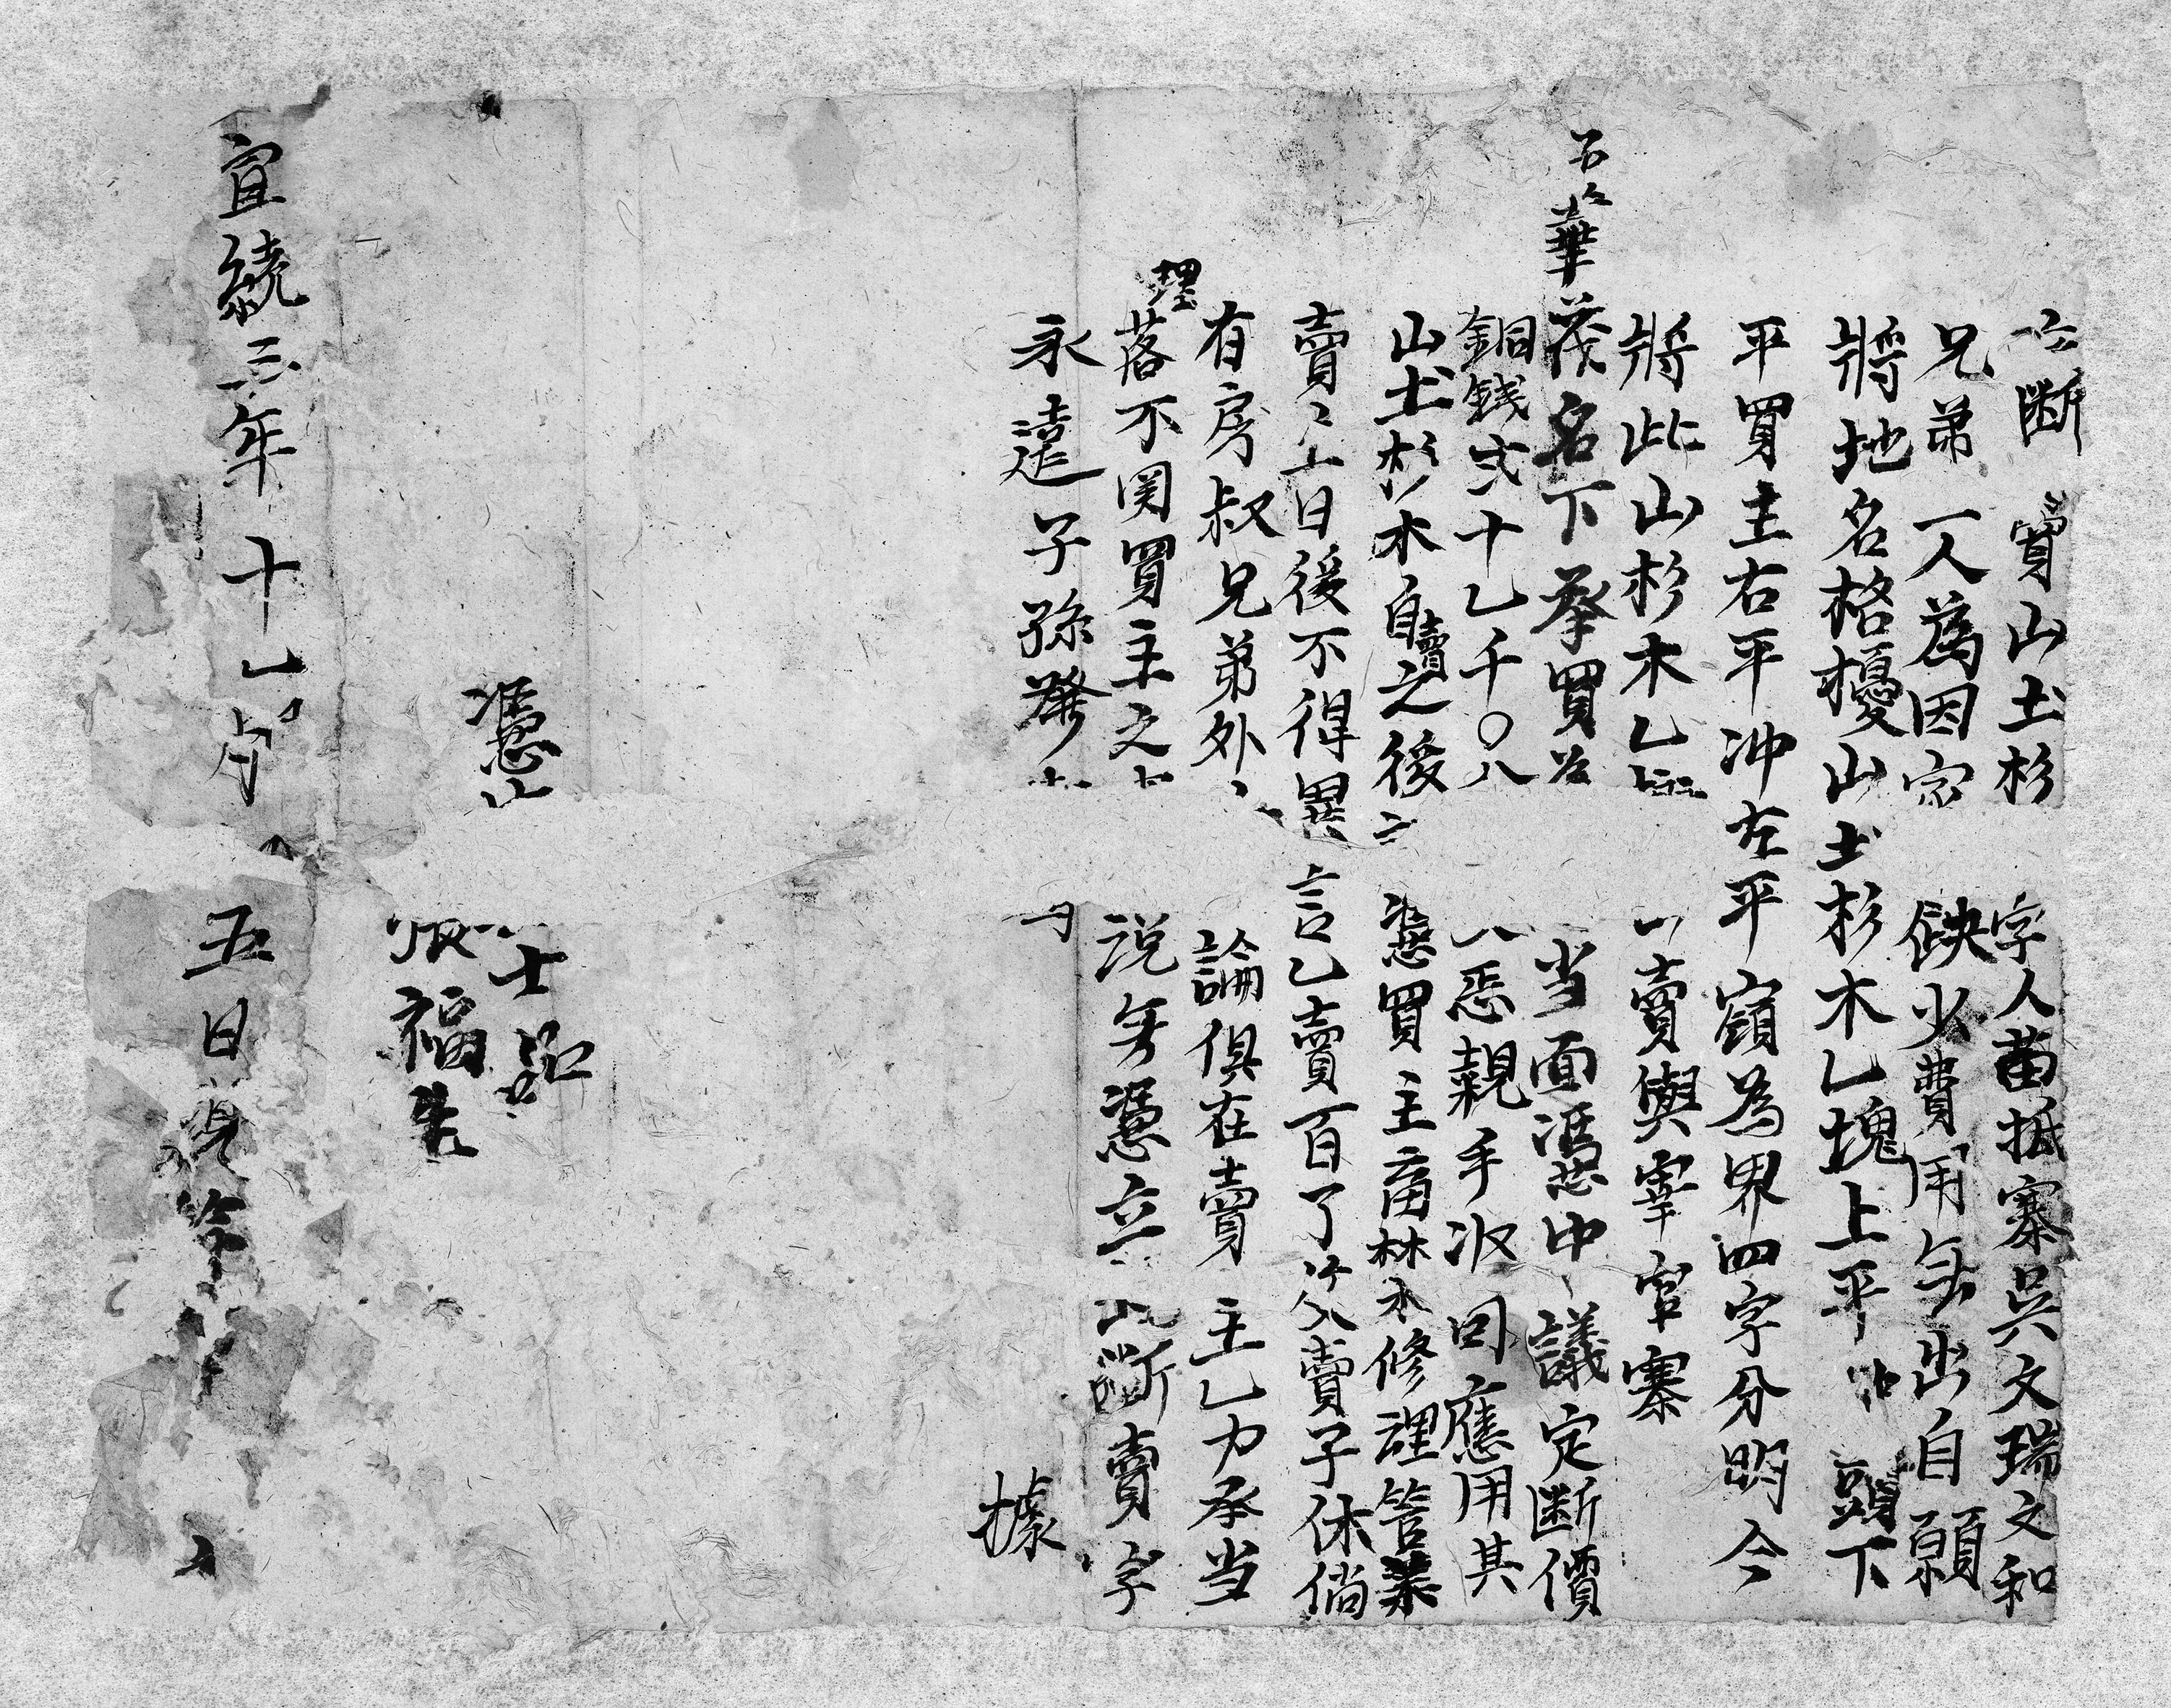 断賣山土杉字人苗抵寨吳文瑞文和
兄弟一人為因家缺少費用無出自願
將地名格擾山土杉木乙塊上平頭下
平買主右平冲左平嶺為界四字分明今
將此山杉木乙賣與宰官寨
華茂名下承買当面憑中議定断價
銅銭弍十乙千〇八親手收回應用其
山土杉木自賣之後憑買主畜林木修理管業
賣日後不得異言乙賣百了父賣子休倘
有房叔兄弟外論俱在賣主乙力承当
理
落不関買主之説無憑立断賣字
永遠子孫發據
憑
福
宣統三年十乙月五日